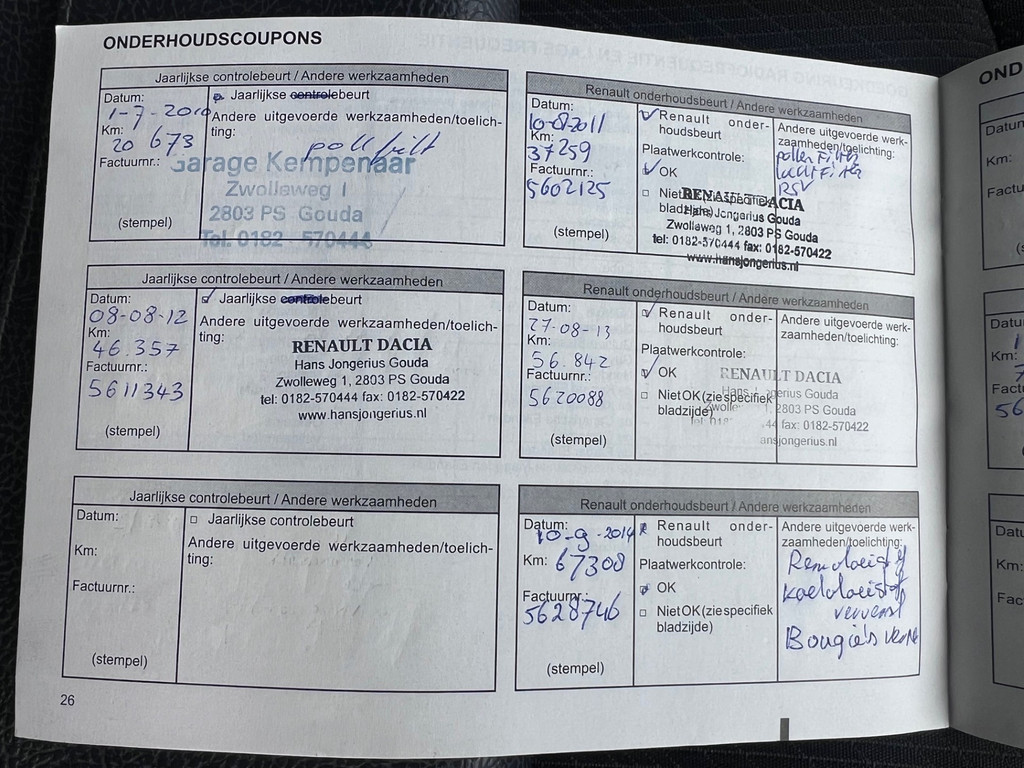 ONDERHOUDSCOUPONS
Jaarlijkse controlebeurt / Andere werkzaamheden
Datum:
1-7-2010
Km:
20 673
Factuurnr.:
(stempel)
Jaarlijkse controlebeurt
Andere uitgevoerde werkzaamheden/toelich-
ting:
Garage Kempenaar
Zwolleweg 1
2803 PS Gouda
Tel. 0182 - 570444
Renault onderhoudsbeurt / Andere werkzaamheden
Datum:
10-08-2011
Km:
37259
Factuurnr.:
5602125
(stempel)
Renault onder-
houdsbeurt
Plaatwerkcontrole:
OK
Niet OK (zie specifiek
bladzijde)
Andere uitgevoerde werk-
zaamheden/toelichting:
pollen Filter
luchtFilter
RSV
RENAULT DACIA
Hans Jongerius Gouda
Zwolleweg 1, 2803 PS Gouda
tel: 0182-570444 fax: 0182-570422
www.hansjongerius.nl
Jaarlijkse controlebeurt / Andere werkzaamheden
Datum:
08-08-12
Km:
46.357
Factuurnr.:
5611343
(stempel)
Jaarlijkse controlebeurt
Andere uitgevoerde werkzaamheden/toelich-
ting:
RENAULT DACIA
Hans Jongerius Gouda
Zwolleweg 1, 2803 PS Gouda
tel: 0182-570444 fax: 0182-570422
www.hansjongerius.nl
Renault onderhoudsbeurt / Andere werkzaamheden
Datum:
27-08-13
Km:
56.842
Factuurnr.:
5620088
(stempel)
Renault onder-
houdsbeurt
Plaatwerkcontrole:
OK
Niet OK (zie specifiek
bladzijde)
Andere uitgevoerde werk-
zaamheden/toelichting:
RENAULT DACIA
Hans Jongerius Gouda
Zwolle 1, 2803 PS Gouda
tel: 018 44 fax: 0182-570422
ansjongerius.nl
Jaarlijkse controlebeurt / Andere werkzaamheden
Datum:
Km:
Factuurnr.:
(stempel)
Jaarlijkse controlebeurt
Andere uitgevoerde werkzaamheden/toelich-
ting:
Renault onderhoudsbeurt / Andere werkzaamheden
Datum:
10-9-2014
Km: 67308
Factuurnr.:
5628746
(stempel)
Renault onder-
houdsbeurt
Plaatwerkcontrole:
OK
Niet OK (zie specifiek
bladzijde)
Andere uitgevoerde werk-
zaamheden/toelichting:
Remvloeistof
koelvloeistof
ververst
Bougie's
26
OND
Datum
Km:
Factu
Datu
Km:
Fact
56
Datu
Km:
Fac